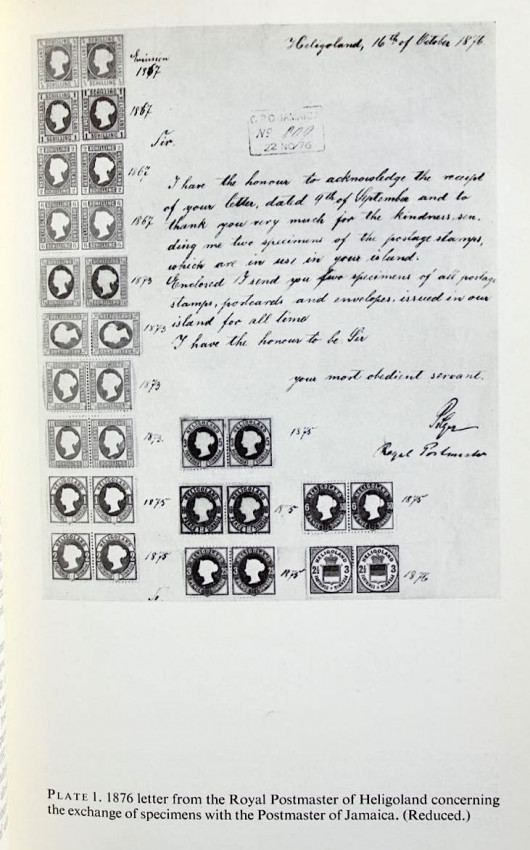 Heligoland, 16th of October 1876.
Specimen
1867
1867
Sir.
G.P.O. JAMAICA
No
22 NO 76
1867
I have the honour to acknowledge the receipt
of your letter, dated 9th of September and to
1867
thank you very much for the kindness, sen-
ding me two specimens of the postage stamps,
which are in use in your island.
1873
Enclosed I send you two specimens of all postage
stamps, postcards and envelopes, issued in our
1873
island for all time
I have the honour to be Sir
1873
your most obedient servant.
Royal Postmaster
1873.
HELIGOLAND HELIGOLAND
1875
1875
1875
1875
1875
1875
HELIGOLAND HELIGOLAND
2½ 3 2½ 3
1876
PLATE 1. 1876 letter from the Royal Postmaster of Heligoland concerning
the exchange of specimens with the Postmaster of Jamaica. (Reduced.)